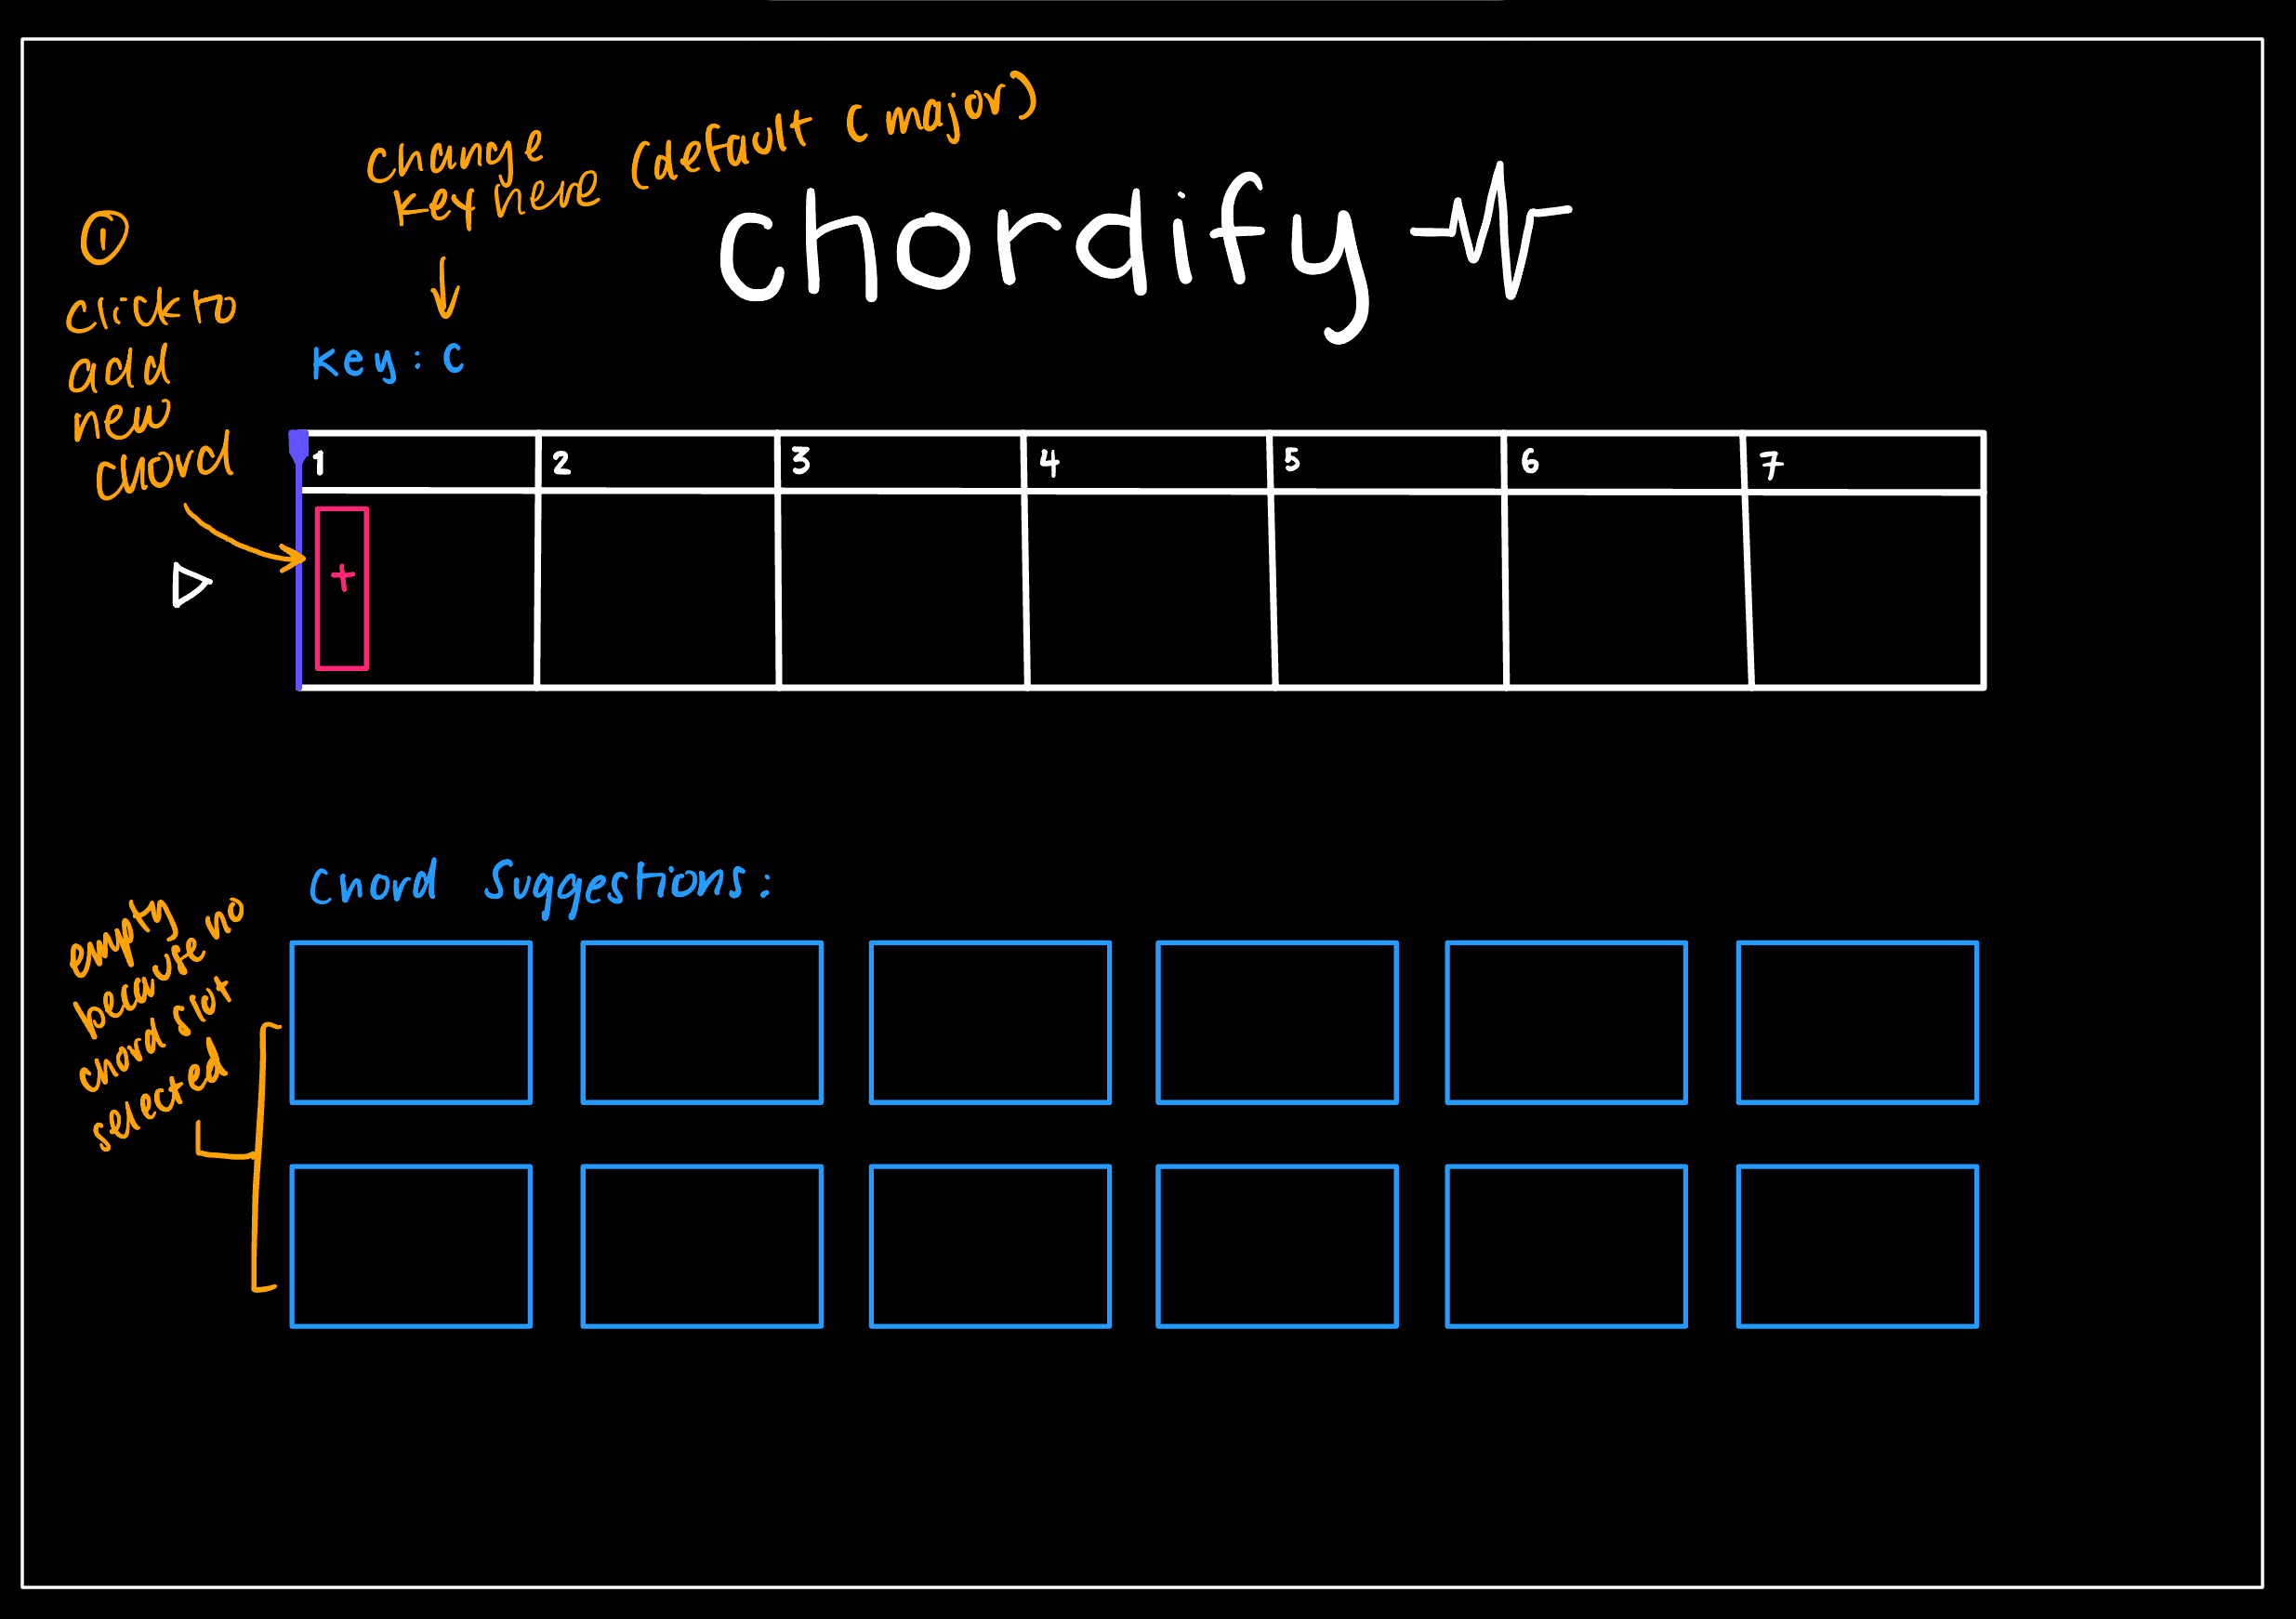 change
key here (default C major)
chordify
①
click to
add
new
chord
Key: C
1 2 3 4 5 6 7
+
Chord Suggestions:
empty
because no
chord slot
selected